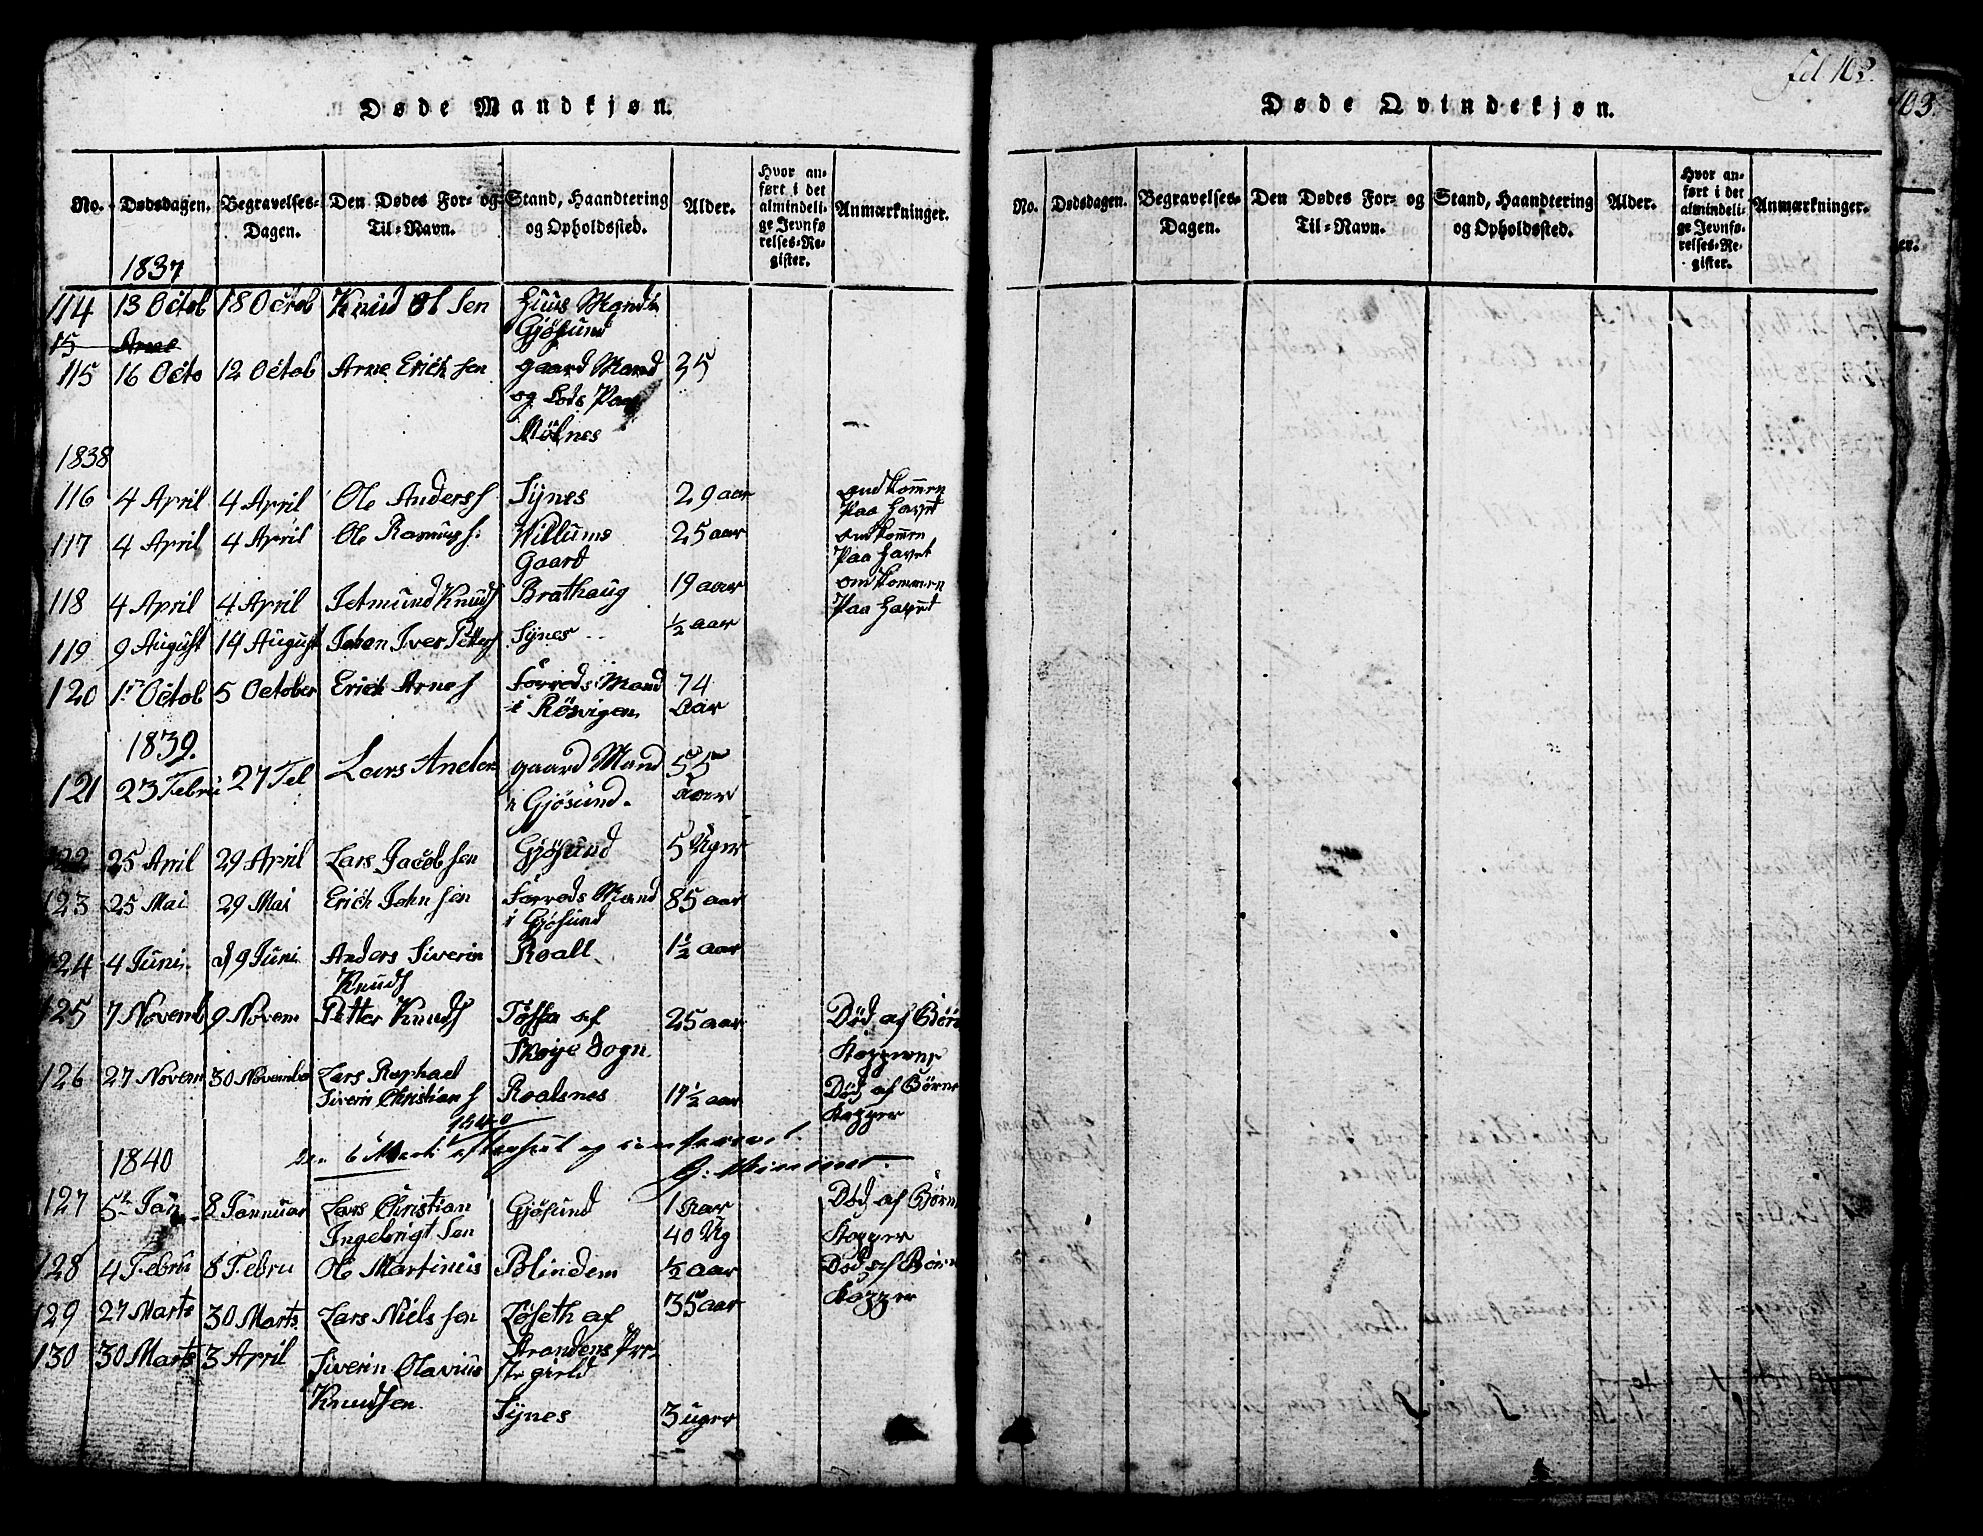 Døde Mandkjøn.
No. Dødsdagen. Begravelses-Dagen. Den Dødes For- og Til-Navn. Stand, Haandtering og Opholdssted. Alder. Hvor anført i det almindelige Jevnførelses-Register. Anmærkninger.
1837
114 13 Octob 18 Octob Knud Olsen Huus Mand i
Gjøsund
15 Arne
115 16 Octo 12 Octob Arne Erichsen gaard Mand 35
og Lods Paa
Mölnes
1838
116 4 April 4 April Ole Anders Synes 29 aar omkommen
Paa Havet
117 4 April 4 April Ole Rasmus: Willums 25 aar omkommen
Gaard Paa Havet
118 4 April 4 April Jetmund Knuds Brathaug 19 aar omkommen
Paa Havet
119 9 August 14 August Johan Iver Petters Synes ½ aar
120 1 Octob 5 October Erich Arnes Forrods Mand 74
i Rösvigen aar
1839.
121 23 Febru 27 Feb Lars Anders gaard Mand 55
i Gjösund. aar
122 25 Aril 29 April Lars Jacobsen Gjøsund 5 Uger
123 25 Mai 29 Mai Erich Johnsen Forrods Mand 85 aar
i Gjøsund
124 4 Juni. d 9 Juni Anders Siverin Roall 1½ aar
Knuds
125 7 Novemb 9 Novem Petter Knuds Tössa af 25 aar Död af Börne
Skoije Sogn Kopper
126 27 Novem 30 November Lars Raphael
Siverin Christians Roalsnes 1½ aar Död af Børne
Kopper
1840
6
1840
127 5 Jan 8 Januar Lars Christian Gjösund 1 aar Död af Børne
Ingebrigtsen 40 Ug Kopper
128 4 Febru 8 Febru Ole Martinus Blindem ½ aar Död af Børne
Kopper
129 27 Marts 30 Marts Lars Nielssen Löseth af 35 aar
Strandens Præ-
130 30 Marts 3 April Siverin Olavius ste gield
Knudsen Synes 3 uger
fol 102.
Døde Qvindekjøn.
No. Dødsdagen. Begravelses-Dagen. Den Dødes For- og Til-Navn. Stand, Haandtering og Opholdssted. Alder. Hvor anført i det almindelige Jevnførelses-Register. Anmærkninger.
103.